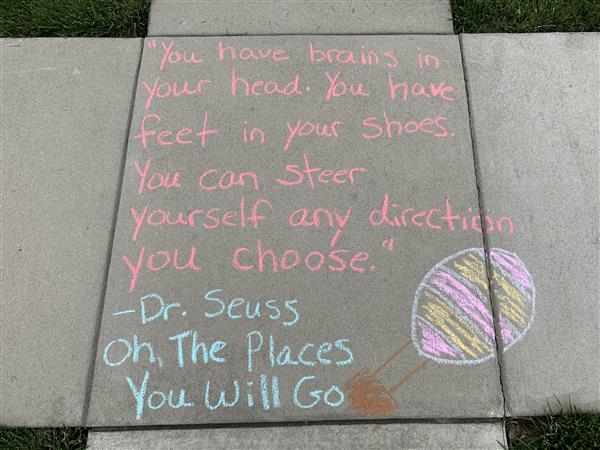 "You have brains in
your head. You have
feet in your shoes.
You can steer
yourself any direction
you choose."
-Dr. Seuss
Oh, The Places
You Will Go